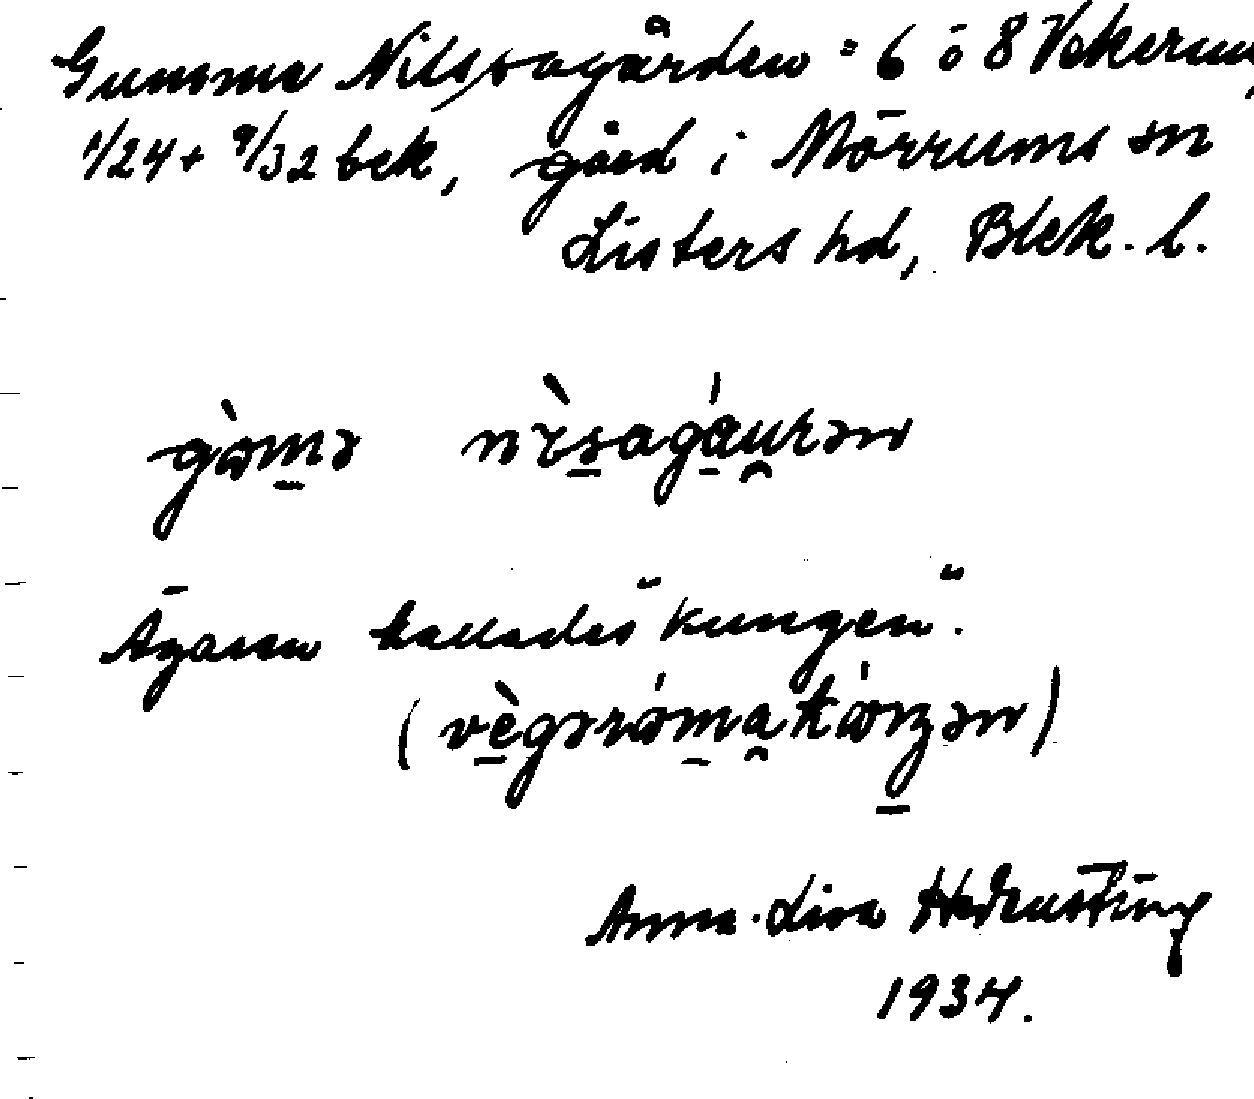 Gumme Nilssagården = 6 o 8 Vekerum,
1/24 + 9/32 bek, gård i Mörrums sn
Listers hd, Blek. l.
gòmə nìsagáurən
Ägaren kallades "Kungen".
(vègərómakóŋən)
Anna-Lisa
1934.